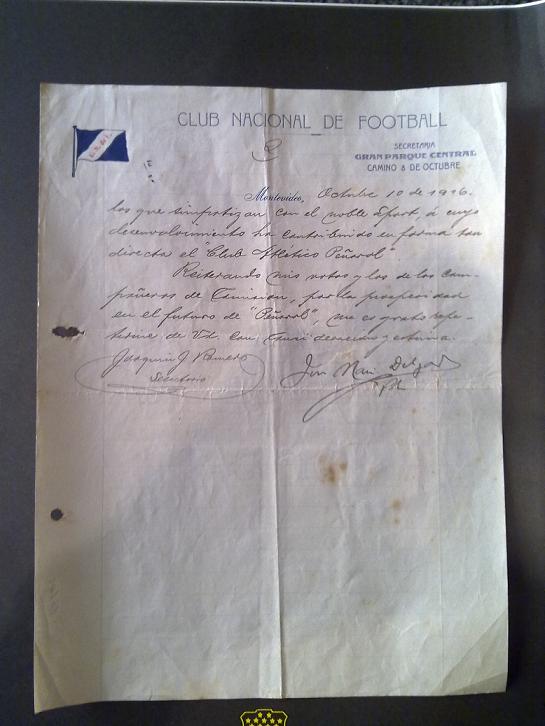 CLUB NACIONAL DE FOOTBALL
2
SECRETARIA
GRAN PARQUE CENTRAL
CAMINO 8 DE OCTUBRE
Montevideo, Octubre 10 de 1916.
los que simpatizan con el noble sport, á cuyo
desenvolvimiento ha contribuido en forma tan
directa el "Club Atlético Peñarol".
Reiterando mis votos y los de los com-
pañeros de Comision, por la prosperidad
en el futuro de "Peñarol", me es grato repe-
tirme de Vd. con consideracion y estima.
Joaquin J
Secretario
José Maria Delgado